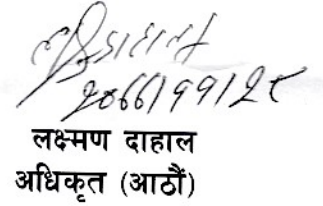 २०६६/११/२९
लक्ष्मण दाहाल
अधिकृत (आठौं)